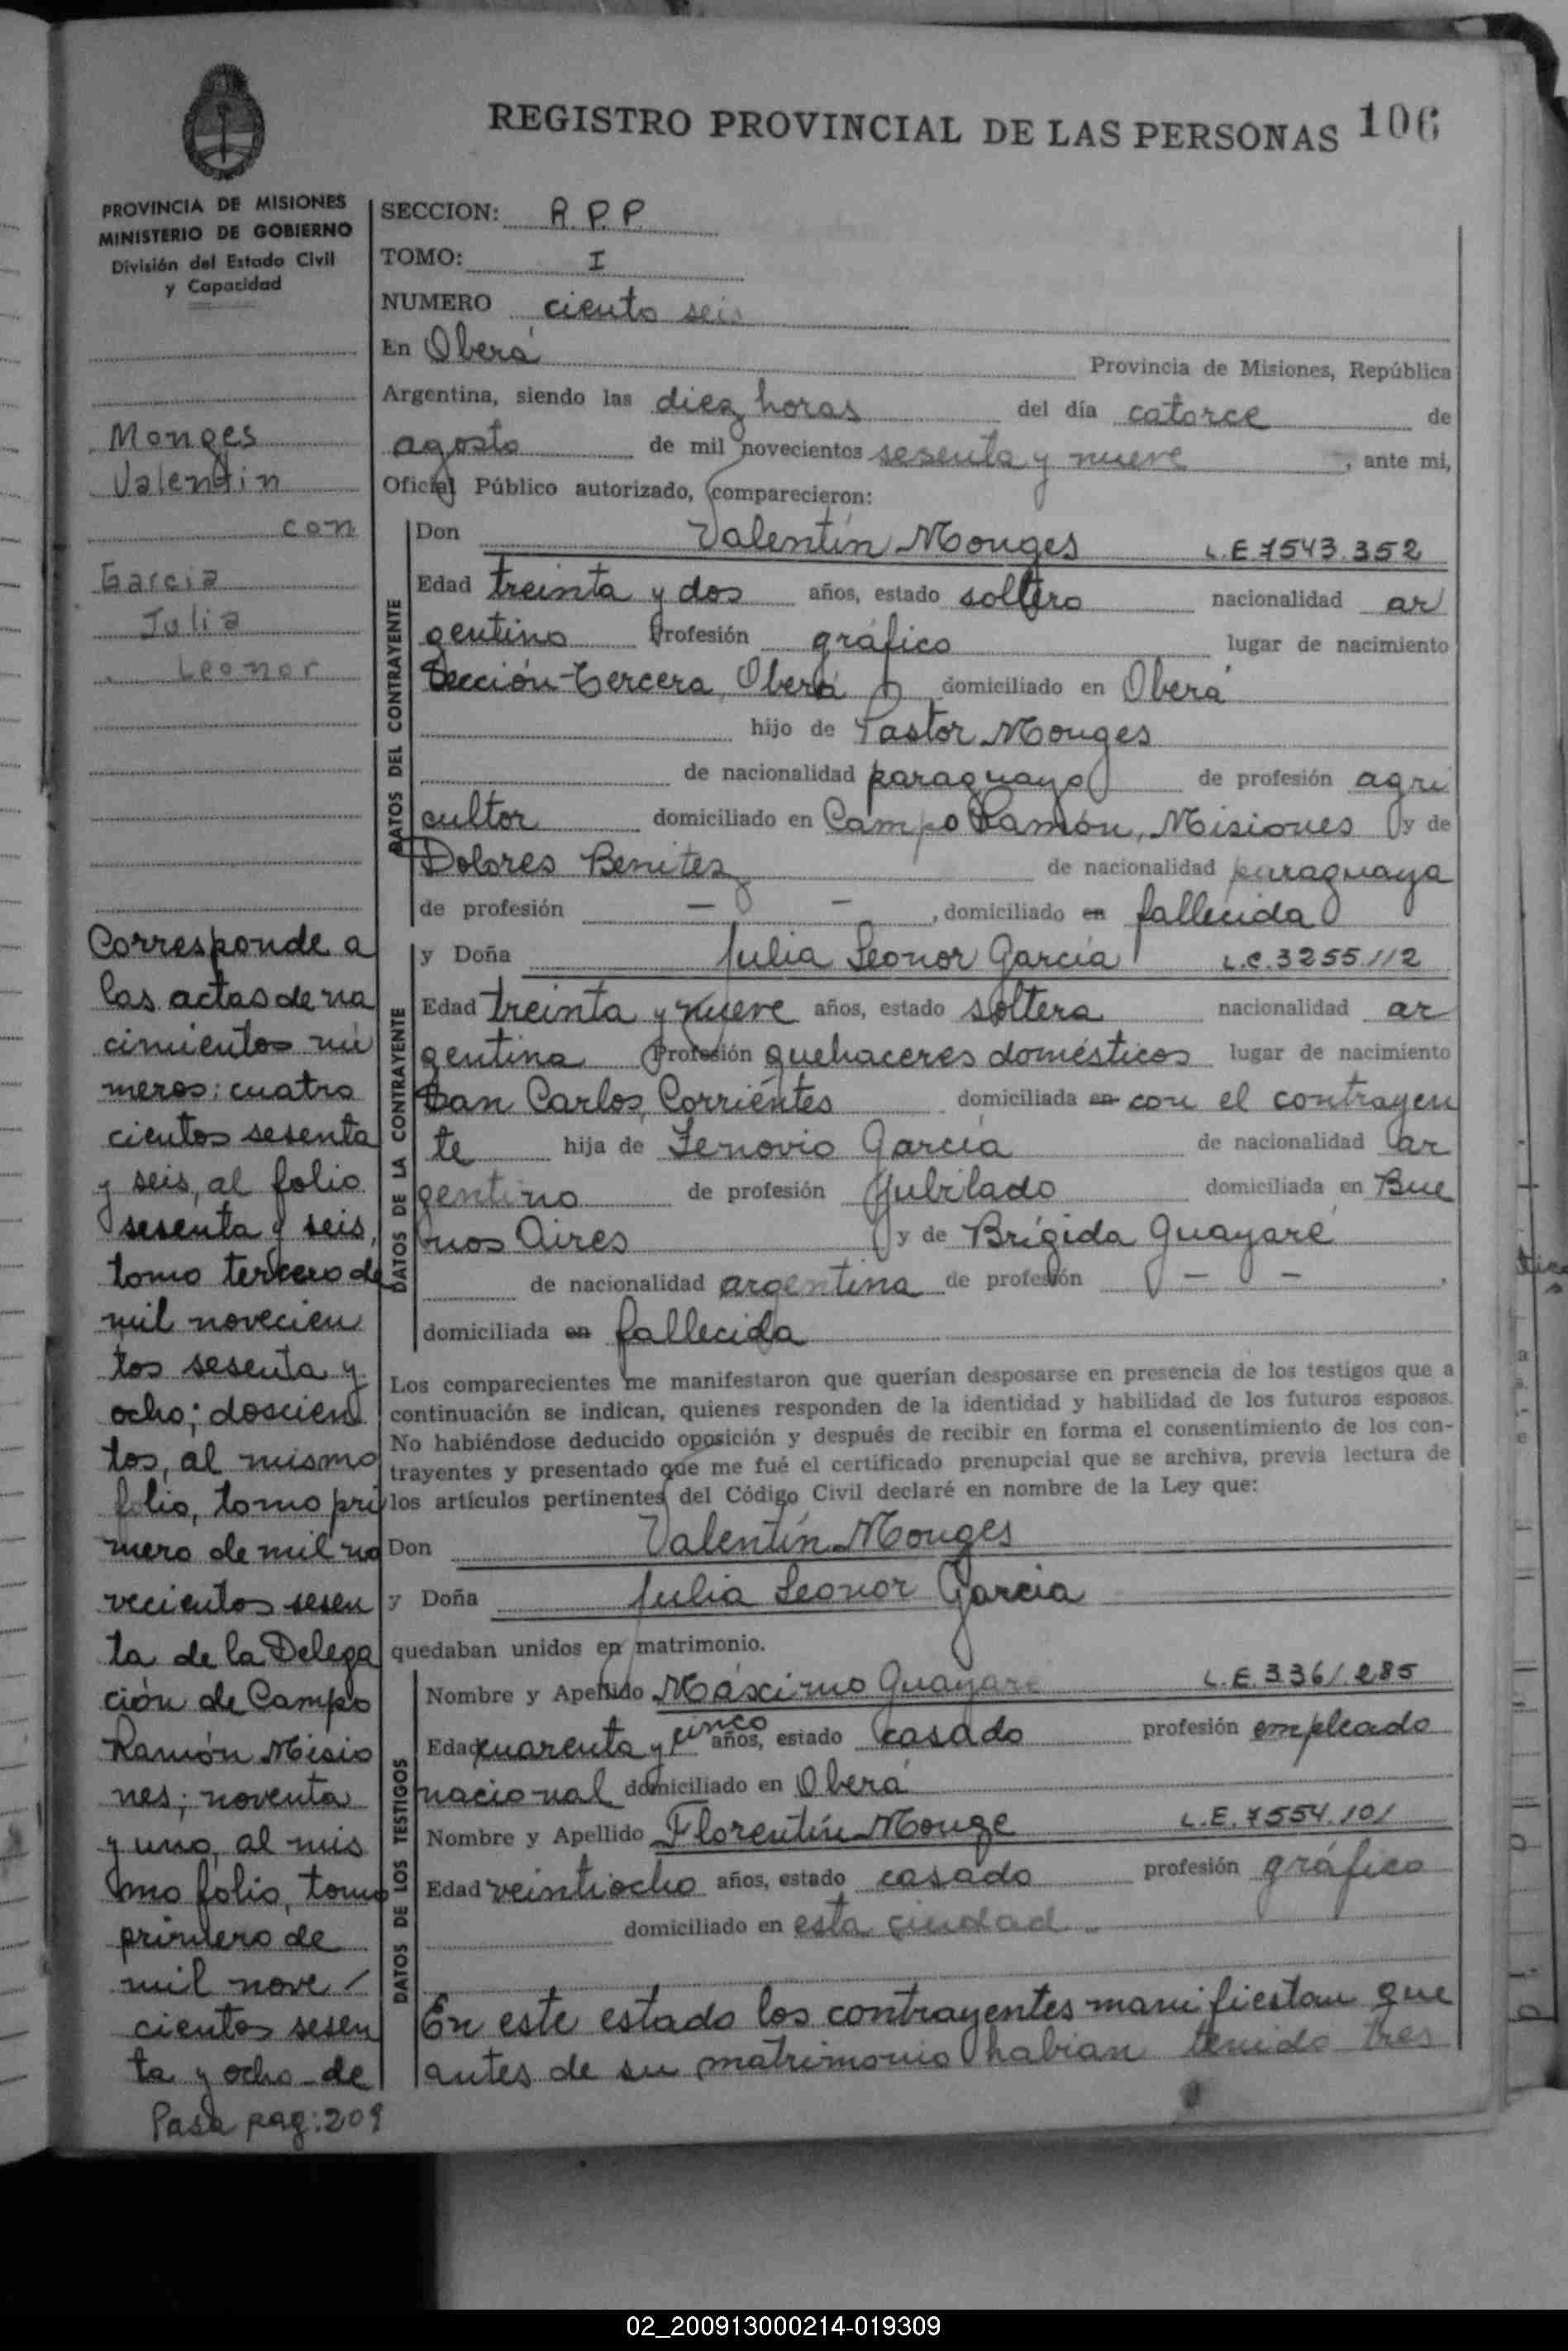 REGISTRO PROVINCIAL DE LAS PERSONAS 106
PROVINCIA DE MISIONES
MINISTERIO DE GOBIERNO
División del Estado Civil
y Capacidad
Monges
Valentin
con
Garcia
Julia
Leonor
Corresponde a
las actas de na
cimientos nú
meros: cuatro
cientos sesenta
y seis, al folio
sesenta y seis,
tomo tercero de
mil novecien
tos sesenta y
ocho; doscien
tos, al mismo
folio, tomo pri
mero de mil no
vecientos sesen
ta de la Delega
ción de Campo
Ramón Misio
nes; noventa
y uno, al mis
mo folio, tomo
primero de
mil nove /
cientos sesen
ta y ocho de
Pasa pag: 209
SECCION: A.P.P.
TOMO: I
NUMERO ciento seis
En Oberá Provincia de Misiones, República
Argentina, siendo las diez horas del día catorce de
agosto de mil novecientos sesenta y nueve, ante mi,
Oficial Público autorizado, comparecieron:
DATOS DEL CONTRAYENTE
Don Valentín Monges L.E. 7543.352
Edad treinta y dos años, estado soltero nacionalidad ar
gentino Profesión gráfico lugar de nacimiento
Sección Tercera, Oberá domiciliado en Oberá
hijo de Pastor Monges
de nacionalidad paraguayo de profesión agri
cultor domiciliado en Campo Ramón, Misiones y de
Dolores Benitez de nacionalidad paraguaya
de profesión — — , domiciliado en fallecida
DATOS DE LA CONTRAYENTE
y Doña Julia Leonor García L.C. 3255.112
Edad treinta y nueve años, estado soltera nacionalidad ar
gentina Profesión quehaceres domésticos lugar de nacimiento
San Carlos, Corrientes domiciliada en con el contrayen
te hija de Zenovio García de nacionalidad ar
gentino de profesión Jubilado domiciliada en Bue
nos Aires y de Brígida Guayaré
de nacionalidad argentina de profesión — —
domiciliada en fallecida
Los comparecientes me manifestaron que querían desposarse en presencia de los testigos que a
continuación se indican, quienes responden de la identidad y habilidad de los futuros esposos.
No habiéndose deducido oposición y después de recibir en forma el consentimiento de los con-
trayentes y presentado que me fué el certificado prenupcial que se archiva, previa lectura de
los artículos pertinentes del Código Civil declaré en nombre de la Ley que:
Don Valentín Monges
y Doña Julia Leonor García
quedaban unidos en matrimonio.
DATOS DE LOS TESTIGOS
Nombre y Apellido Máximo Guayaré L.E. 3361.285
Edad cuarenta y cinco años, estado casado profesión empleado
nacional domiciliado en Oberá
Nombre y Apellido Florentín Monge L.E. 7554.101
Edad veintiocho años, estado casado profesión gráfico
domiciliado en esta ciudad
En este estado los contrayentes manifiestan que
antes de su matrimonio habian tenido tres
02_200913000214-019309